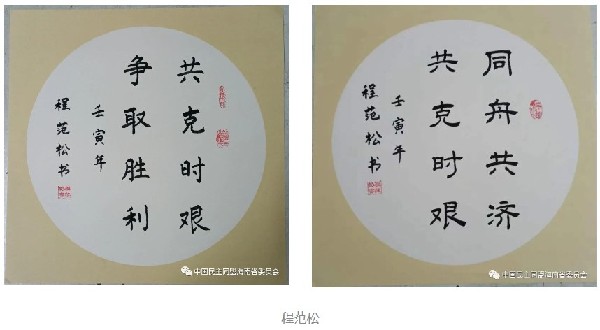 共克时艰
争取胜利
壬寅年
程范松书
中国民主同盟海南省委员会
同舟共济
共克时艰
壬寅年
程范松书
中国民主同盟海南省委员会
程范松